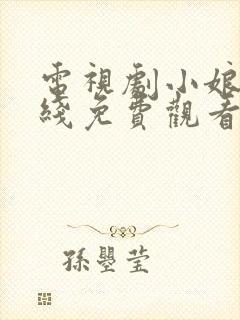 電視劇小娘
綫免費觀看
孫瞾莹